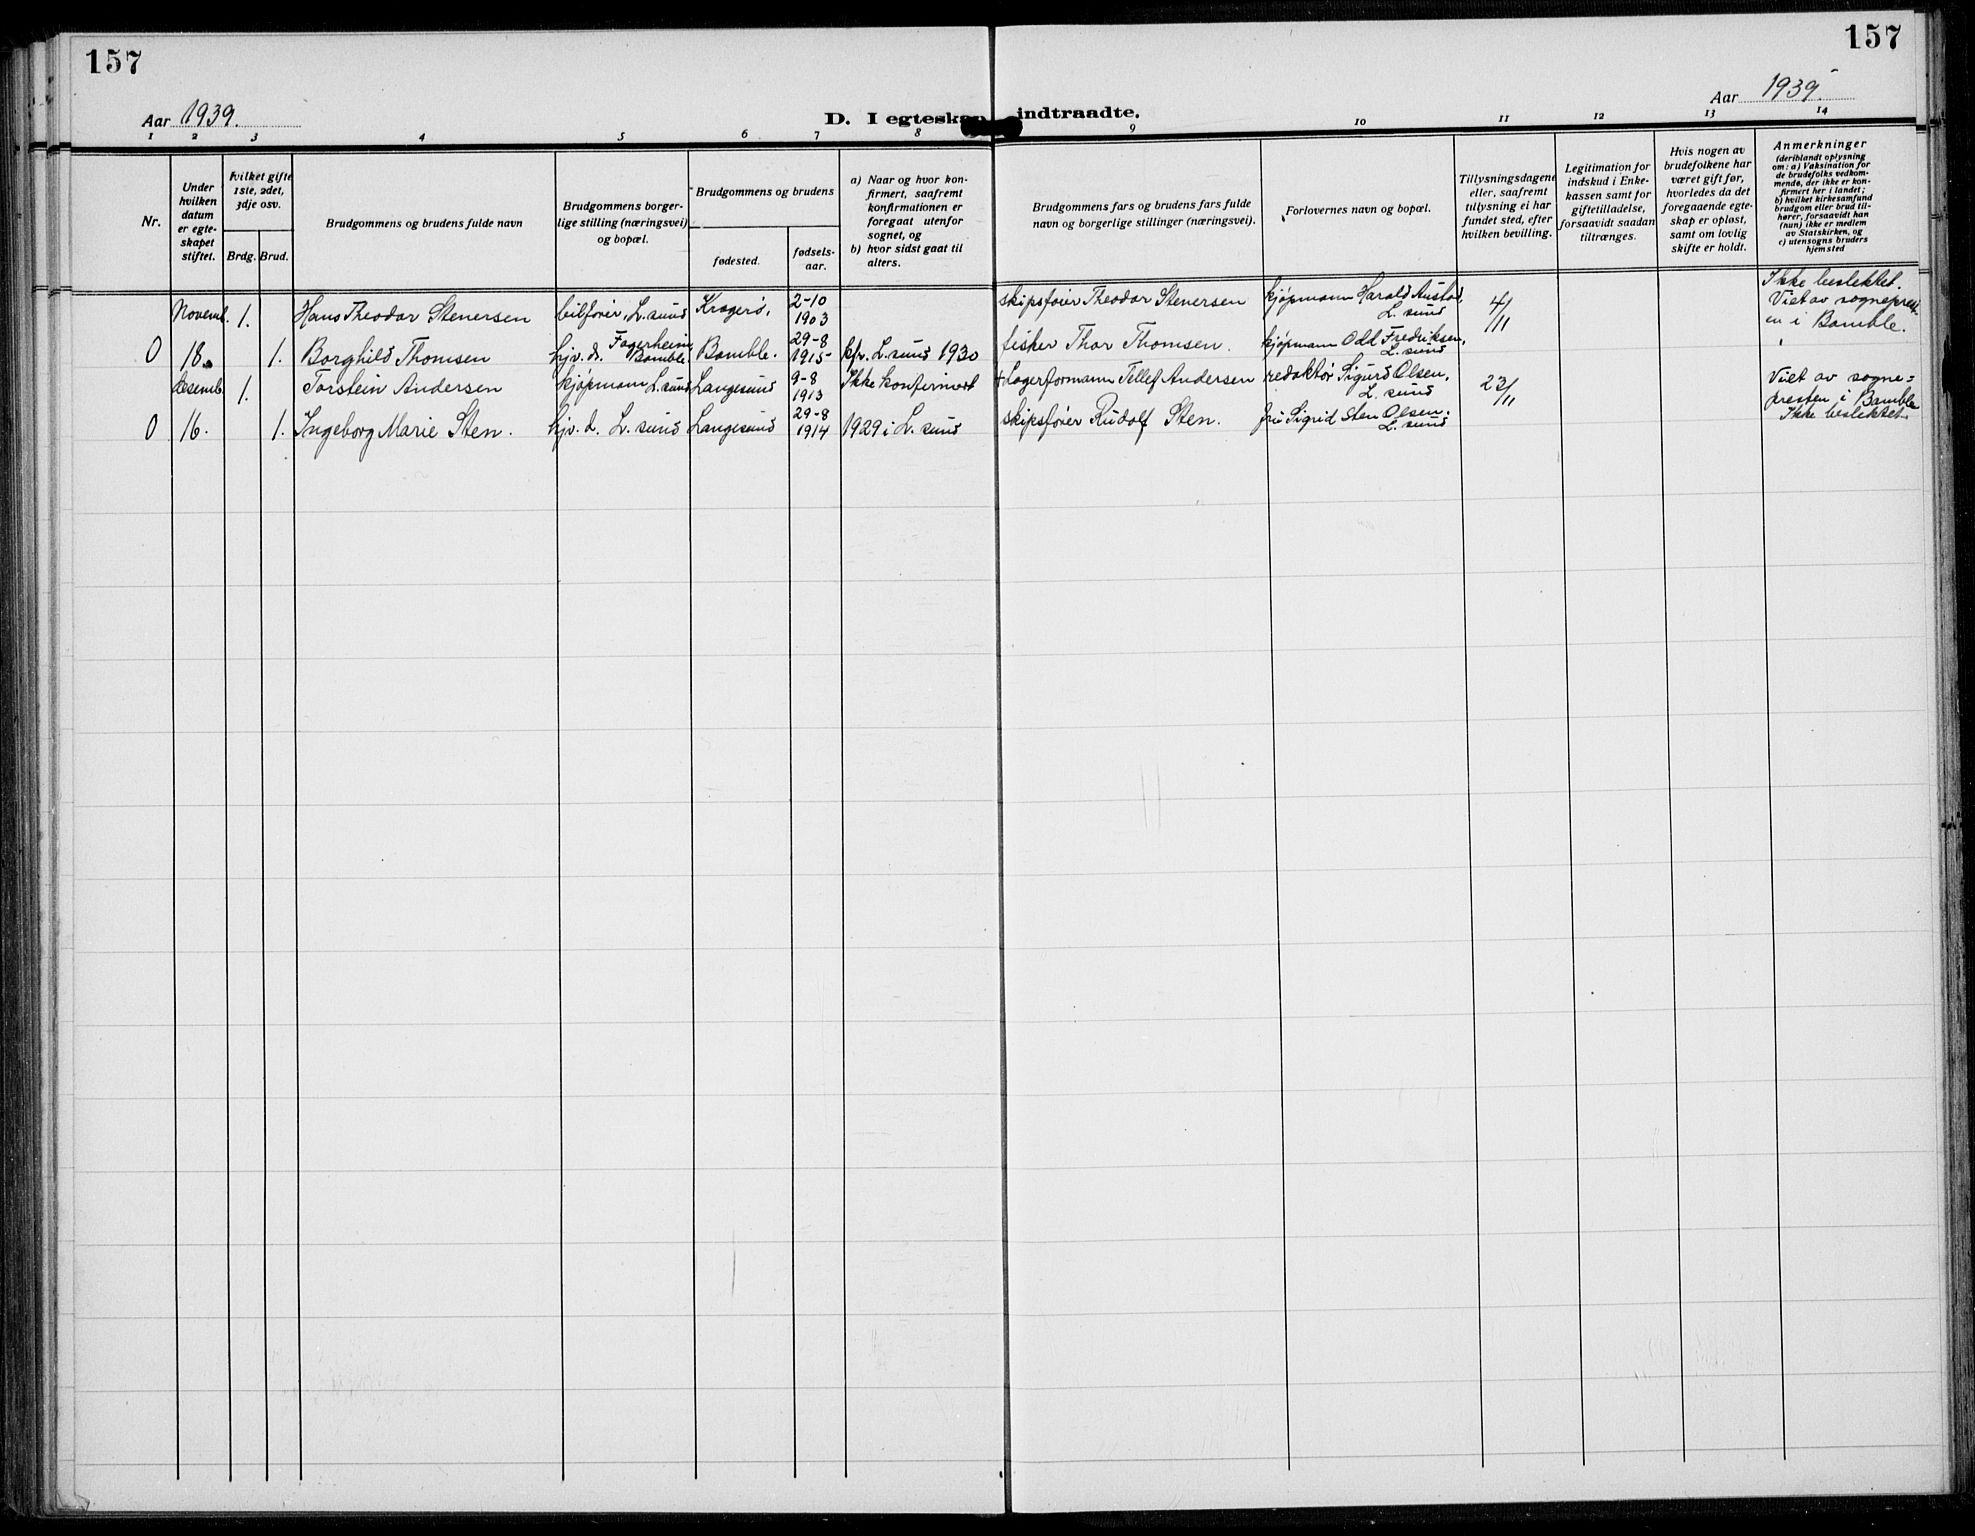 157
157
Aar 1939.
D. I egteskap indtraadte.
Aar 1939.
1 2 3 4 5 6 7 8 9 10 11 12 13 14
Nr.
Under hvilken datum er egteskapet stiftet.
Hvilket gifte 1ste, 2det, 3dje osv.
Brdg. Brud.
Brudgommens og brudens fulde navn
Brudgommens borgerlige stilling (næringsvei) og bopæl.
Brudgommens og brudens
fødested.
fødselsaar.
a) Naar og hvor konfirmert, saafremt konfirmationen er foregaat utenfor sognet, og
b) hvor sidst gaat til alters.
Brudgommens fars og brudens fars fulde navn og borgerlige stillinger (næringsvei).
Forlovernes navn og bopæl.
Tillysningsdagene eller, saafremt tillysning ei har fundet sted, efter hvilken bevilling.
Legitimation for indskud i Enkekassen samt for giftetilladelse, forsaavidt saadan tiltrænges.
Hvis nogen av brudefolkene har været gift før, hvorledes da det foregaaende egteskap er opløst, samt om lovlig skifte er holdt.
Anmerkninger
(deriblandt oplysning om: a) Vaksination for de brudefolks vedkommende, der ikke er konfirmert her i landet; b) hvilket kirkesamfund brudgom eller brud tilhører, forsaavidt han (hun) ikke er medlem av Statskirken, og c) utensogns bruders hjemsted
Novemb. 1. Hans Theodor Stenersen bilfører, L.sund Kragerø, 2-10 1903 skipsfører Theodor Stenersen kjøpmann Harald Austad, L. sund 4/11 Ikke beslektet. Viet av sogneprest-
en i Bamble.
0 18. 1. Borghild Thomsen hjv. d. Fagerheim Bamble. Bamble. 29-8 1915 kfr. L. sund 1930 fisker Thor Thomsen. kjøpmann Odd Fredriksen, L. sund
desemb. 1. Torstein Andersen kjøpmann L.sund Langesund 9-8 1913 Ikke konfirmert + Lagerformann Tellef Andersen redaktør Sigurd Olsen, L. sund 23/11 Viet av sogne=
presten i Bamble
0 16. 1. Ingeborg Marie Sten. hjv. d. L. sund Langesund 29-8 1914 1929 i L. sund skipsfører Rudolf Sten. fru Sigrid Sten Olsen. L. sund Ikke beslektet.